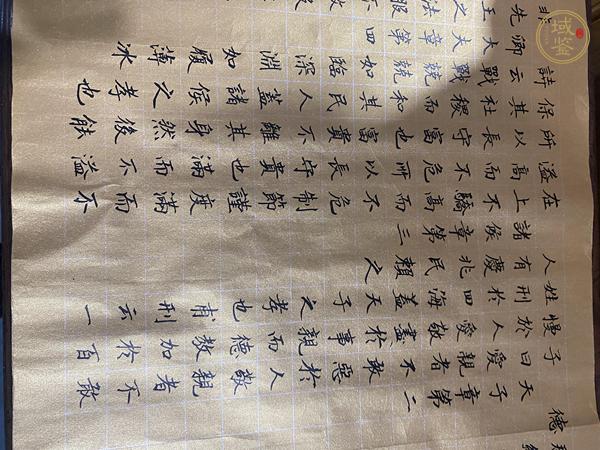 天子章第二
子曰愛親者不敢惡於人敬親者不敢
慢於人愛敬盡於事親而德教加於百
姓刑於四海蓋天子之孝也甫刑云一
人有慶兆民賴之
諸侯章第三
在上不驕高而不危制節謹度滿而不
溢高而不危所以長守貴也滿而不溢
所以長守富也富貴不離其身然後能
保其社稷而和其民人蓋諸侯之孝也
詩云戰戰兢兢如臨深淵如履薄冰
卿大夫章第四
非先王之法服